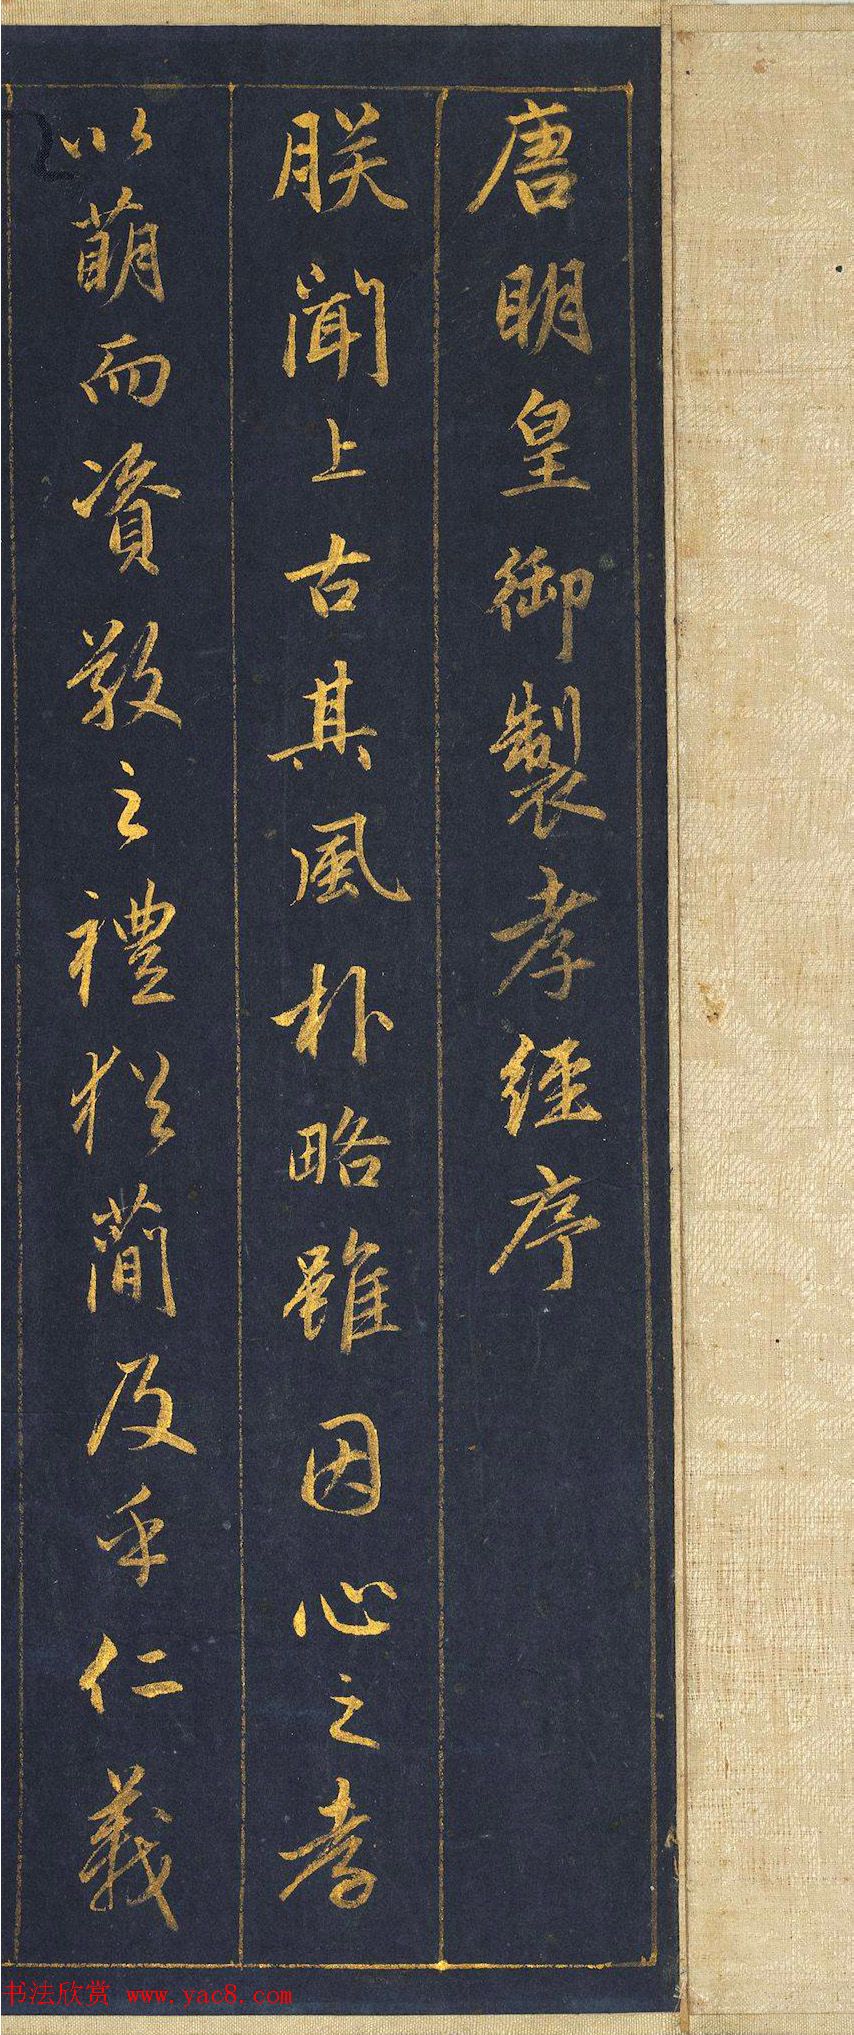 唐明皇御製孝經序
朕聞上古其風朴略雖因心之孝
以萌而資敬之禮猶簡及乎仁義
书法欣赏 www.yac8.com